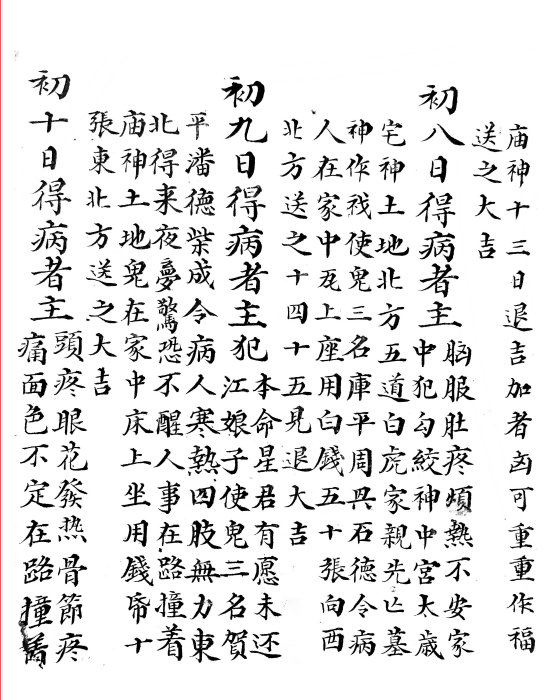 庙神十三日退吉加者凶可重重作福
送之大吉
初八日得病者主
胸服肚疼煩熱不安家
中犯勾絞神中宮太歲
宅神土地北方五道白虎家親先亡墓
神作戏使鬼三名庫平周具石德令病
人在家中瓦上座用白錢五十張向西
北方送之十四十五見退大吉
初九日得病者主犯
本命星君有愿未还
江娘子使鬼三名賀
平潘德柴成令病人寒熱四肢無力東
北得来夜夢驚恐不醒人事在路撞着
庙神土地鬼在家中床上坐用錢帋十
張東北方送之大吉
初十日得病者主
頭疼眼花發热骨節疼
痛面色不定在路撞着